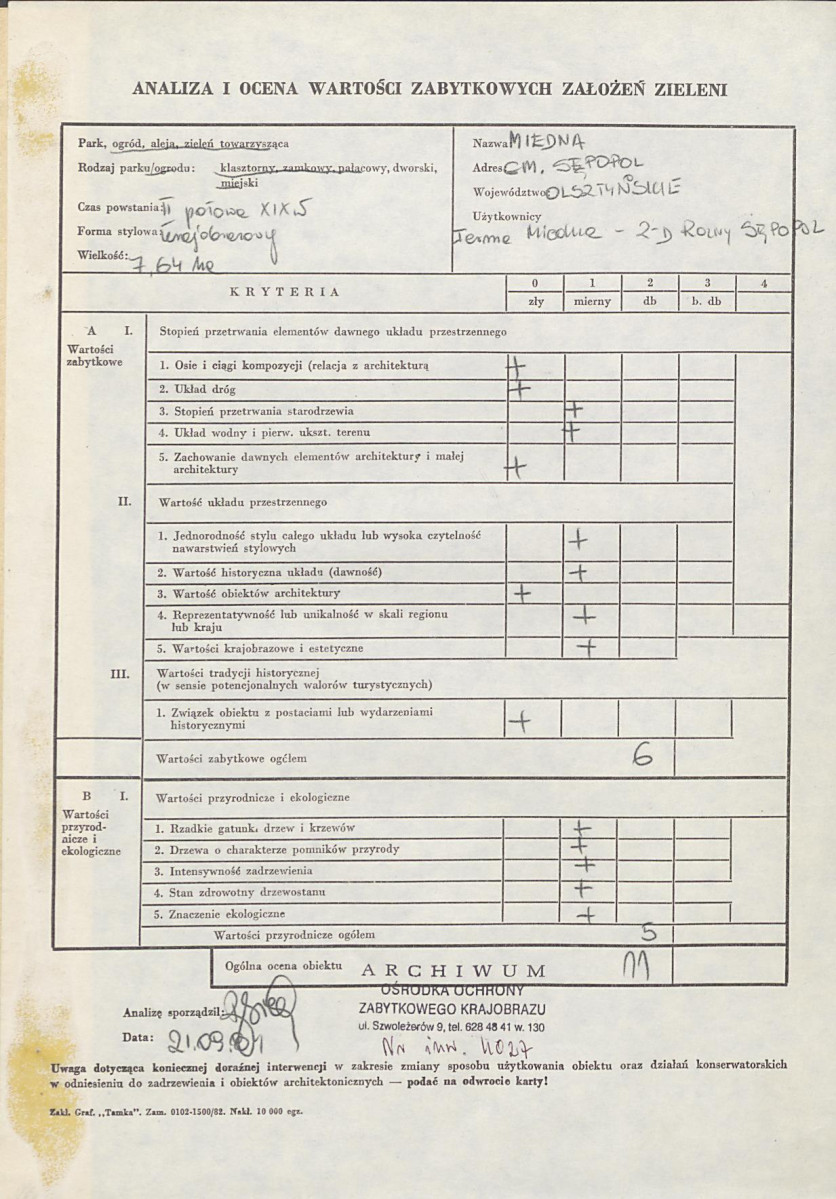 ANALIZA I OCENA WARTOŚCI ZABYTKOWYCH ZAŁOŻEŃ ZIELENI
Park, ogród, aleja, zieleń towarzysząca
Rodzaj parku/ogrodu: klasztorny, zamkowy, pałacowy, dworski,
miejski
Czas powstania: II połowa XIX
Forma stylowa: krajobrazowy
Wielkość: 7,64 ha
Nazwa MIEDNA
Adres GM. SĘPOPOL
Województwo OLSZTYŃSKIE
Użytkownicy
Miedna - Z-D Rolny SĘPOPOL
KRYTERIA
0 1 2 3 4
zły mierny db b. db
A I. Stopień przetrwania elementów dawnego układu przestrzennego
Wartości
zabytkowe
1. Osie i ciągi kompozycji (relacja z architekturą +
2. Układ dróg +
3. Stopień przetrwania starodrzewia +
4. Układ wodny i pierw. ukszt. terenu +
5. Zachowanie dawnych elementów architektury i małej
architektury +
II. Wartość układu przestrzennego
1. Jednorodność stylu całego układu lub wysoka czytelność
nawarstwień stylowych +
2. Wartość historyczna układu (dawność) +
3. Wartość obiektów architektury +
4. Reprezentatywność lub unikalność w skali regionu
lub kraju +
5. Wartości krajobrazowe i estetyczne +
III. Wartości tradycji historycznej
(w sensie potencjonalnych walorów turystycznych)
1. Związek obiektu z postaciami lub wydarzeniami
historycznymi +
Wartości zabytkowe ogółem 6
B I. Wartości przyrodnicze i ekologiczne
Wartości
przyrod-
nicze i
ekologiczne
1. Rzadkie gatunki drzew i krzewów +
2. Drzewa o charakterze pomników przyrody +
3. Intensywność zadrzewienia +
4. Stan zdrowotny drzewostanu +
5. Znaczenie ekologiczne +
Wartości przyrodnicze ogółem 5
Ogólna ocena obiektu 11
ARCHIWUM
OŚRODKA OCHRONY
ZABYTKOWEGO KRAJOBRAZU
ul. Szwoleżerów 9, tel. 628 48 41 w. 130
Nr inw. 4027
Analizę sporządził:
Data: 21.09.
Uwaga dotycząca koniecznej doraźnej interwencji w zakresie zmiany sposobu użytkowania obiektu oraz działań konserwatorskich
w odniesieniu do zadrzewienia i obiektów architektonicznych — podać na odwrocie karty!
Zakł. Graf. „Tamka". Zam. 0102-1500/82. Nakł. 10 000 egz.